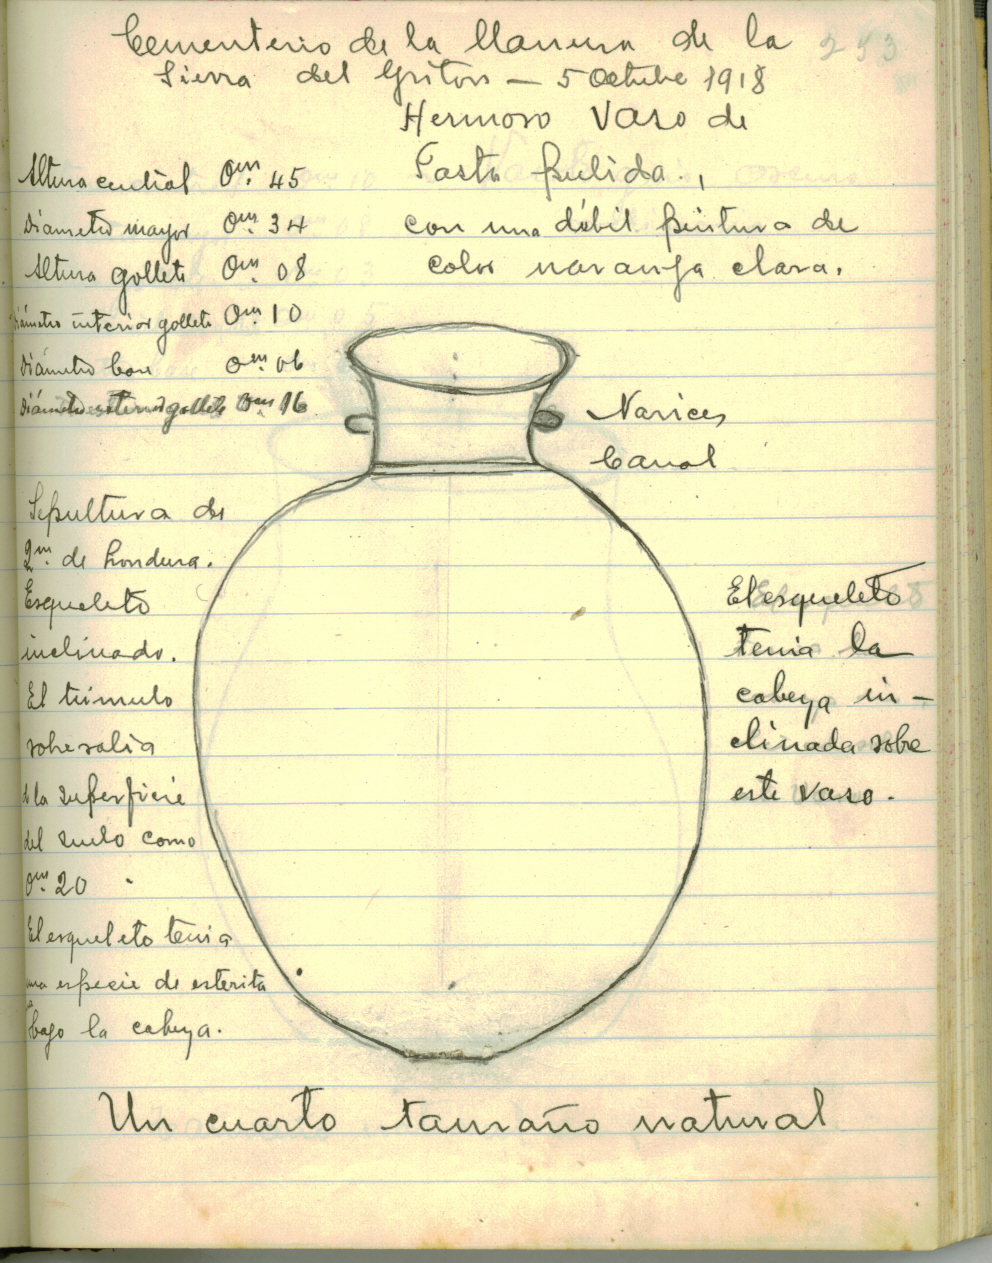 Cementerio de la llanura de la
253
Sierra del Gritón — 5 Octubre 1918
Hermoso Vaso de
Pasta pulida.,
con una débil pintura de
color naranja clara.
Altura central 0m. 45
Diámetro mayor 0m. 34
Altura gollete 0m. 08
Diámetro interior gollete 0m. 10
Diámetro base 0m. 06
Diámetro exterior gollete 0m. 16
Narices
Canal
Sepultura de
2m. de hondura.
Esqueleto
inclinado.
El túmulo
sobresalía
d la superficie
del suelo como
0m. 20
El esqueleto tenia
una especie de esterita
bajo la cabeza.
El esqueleto
tenia la
cabeza in-
clinada sobre
este vaso.
Un cuarto tamaño natural